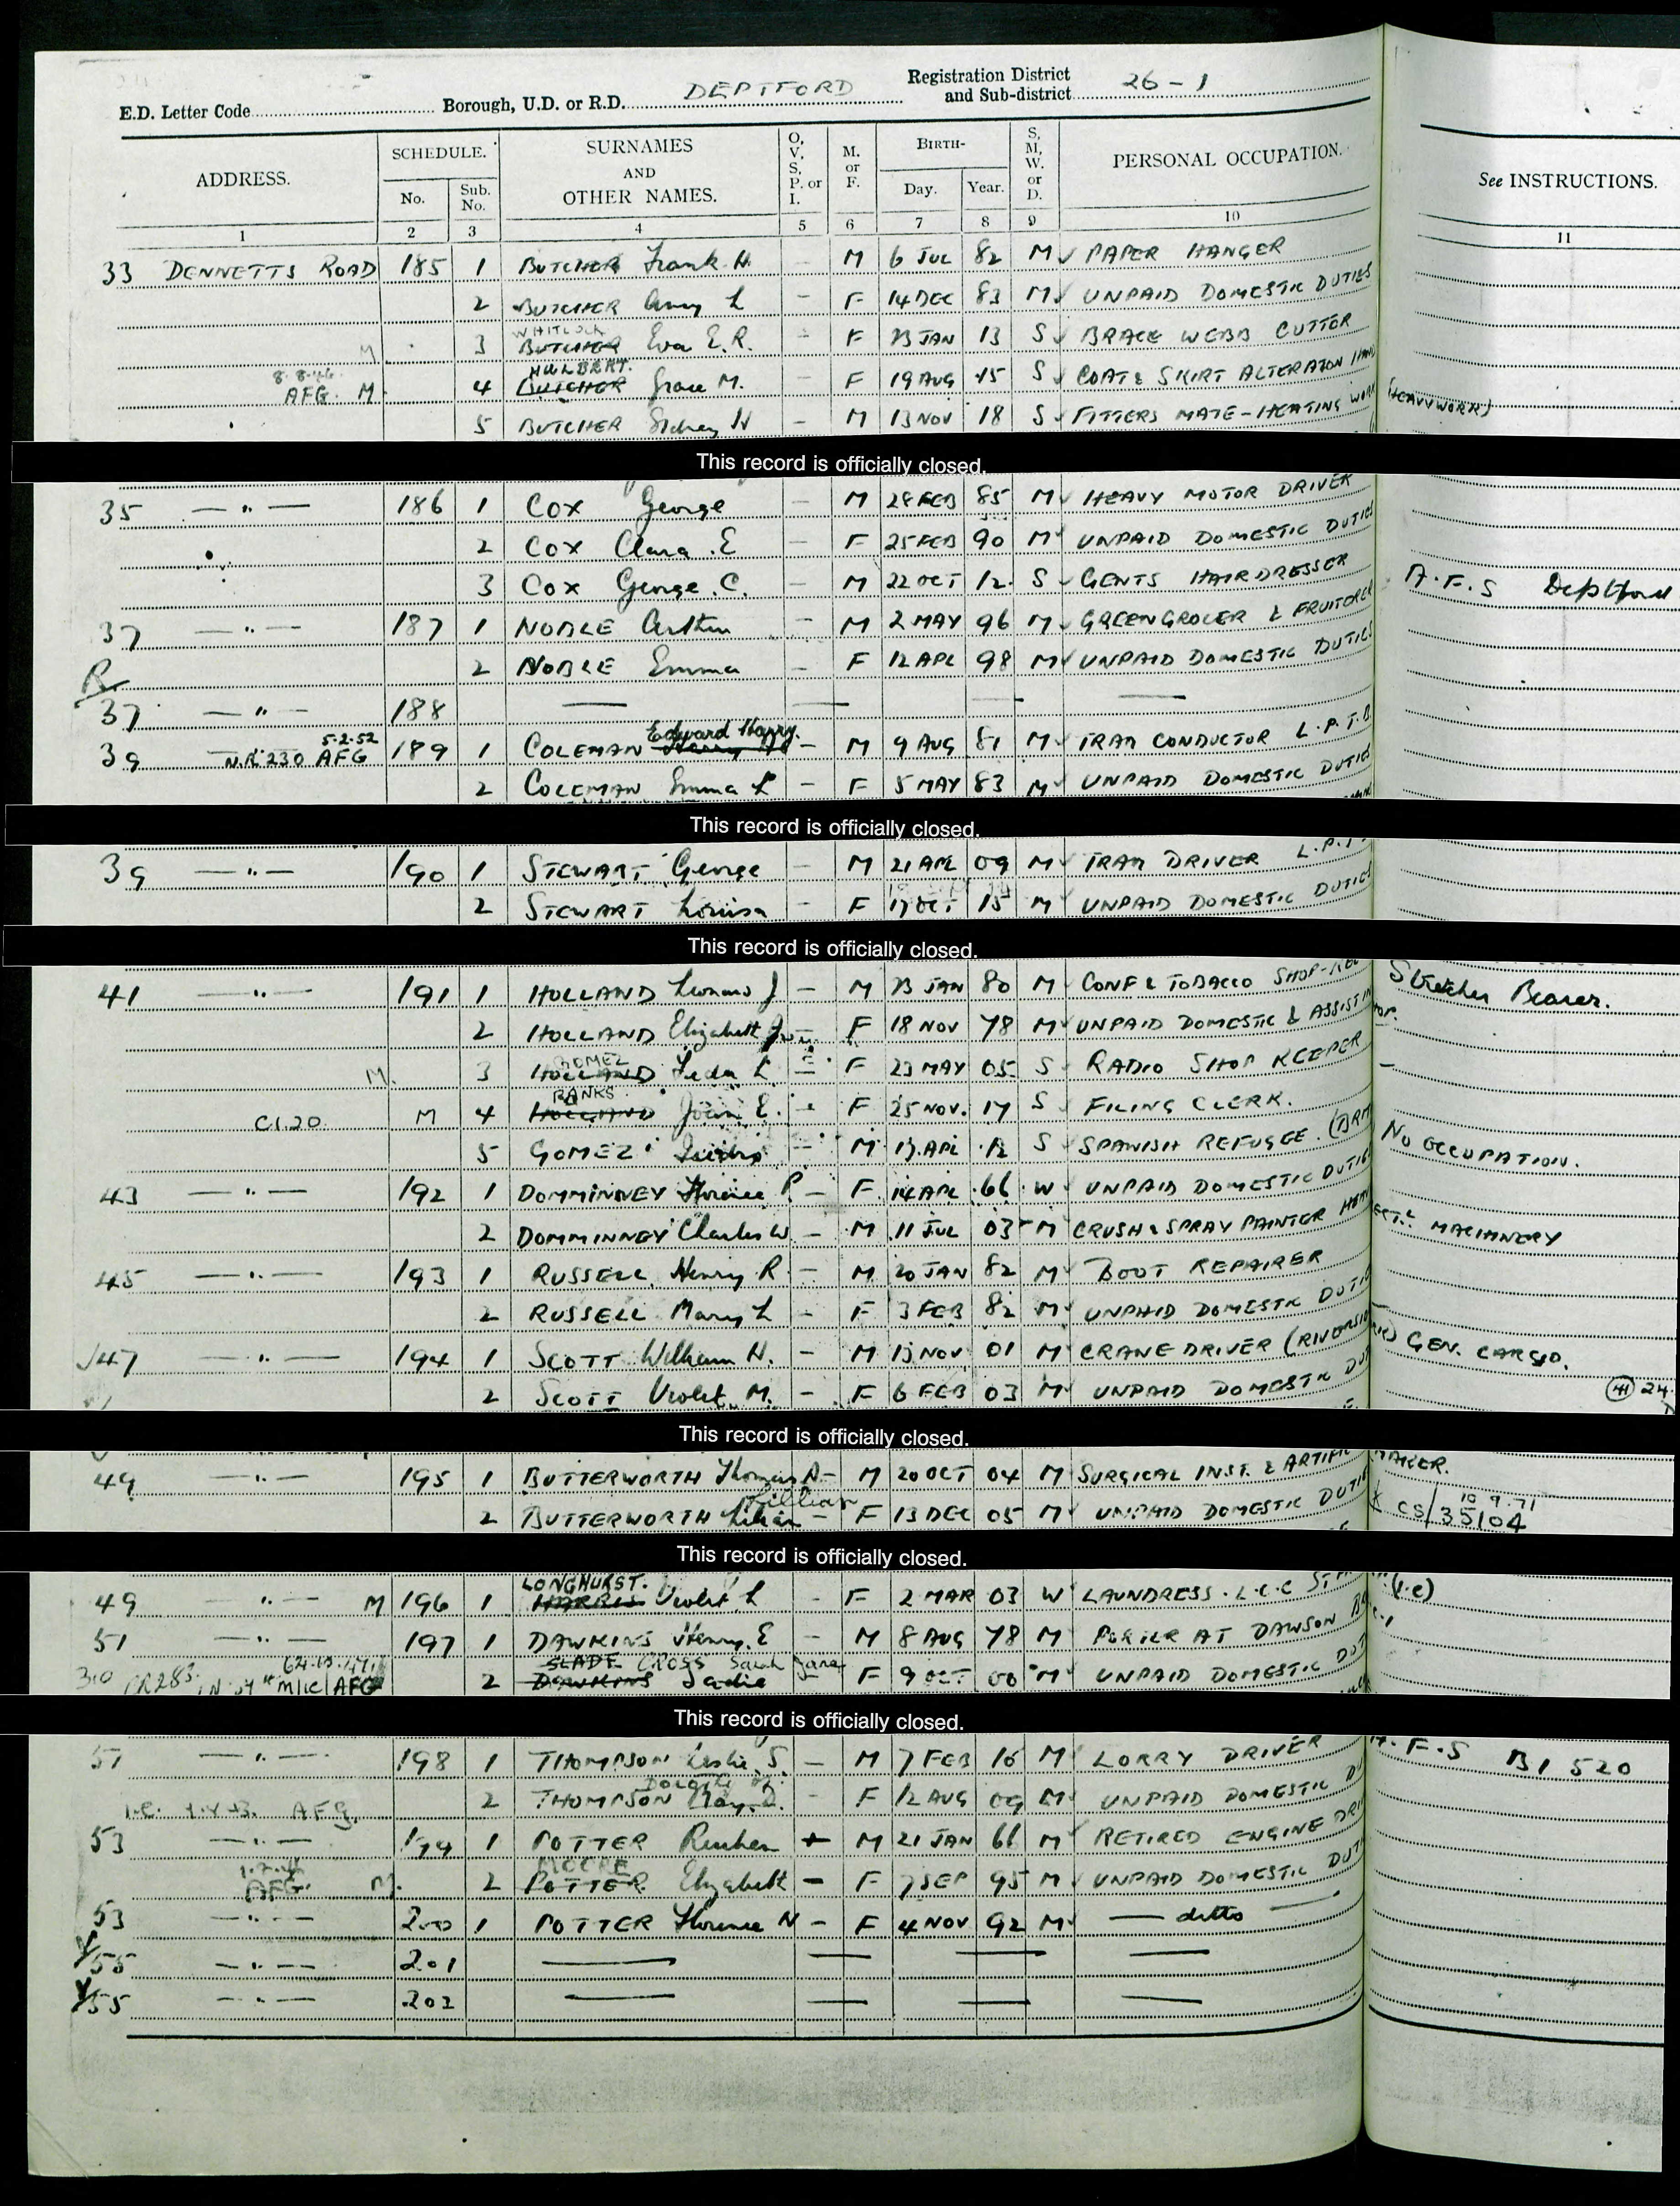 E.D. Letter Code Borough, U.D. or R.D. DEPTFORD Registration District and Sub-district 26-1
ADDRESS. SCHEDULE. No. Sub. No. SURNAMES AND OTHER NAMES. O, V, S, P. or I. M. or F. BIRTH- Day. Year. S, M, W. or D. PERSONAL OCCUPATION. See INSTRUCTIONS.
1 2 3 4 5 6 7 8 9 10 11
33 DENNETTS ROAD 185 1 BUTCHER Frank H. - M 6 JUL 82 M PAPER HANGER
2 BUTCHER Amy L - F 14 DEC 83 M UNPAID DOMESTIC DUTIES
WHITLOCK
M 3 BUTCHER Eva E.R. - F 23 JAN 13 S BRACE WEBB CUTTOR
8.8.46 HULBERT.
AFG. M. 4 BUTCHER Grace M. - F 19 AUG 15 S COAT & SKIRT ALTERATON HAND
5 BUTCHER Sidney H - M 13 NOV 18 S FITTERS MATE - HEATING WORK (HEAVY WORK)
This record is officially closed.
35 — " — 186 1 COX George - M 28 FEB 85 M HEAVY MOTOR DRIVER
2 COX Clara .E - F 25 FEB 90 M UNPAID DOMESTIC DUTIES
3 COX George. C. - M 22 OCT 12. S GENTS HAIRDRESSER A.F.S Deptford
37 — " — 187 1 NOBLE Arthur - M 2 MAY 96 M GREENGROCER & FRUITERER
R 2 NOBLE Emma - F 12 APL 98 M UNPAID DOMESTIC DUTIES
37 — " — 188 — — — —
5.2.52 Edward Harry.
39 N.R. 230 AFG 189 1 COLEMAN - M 9 AUG 81 M TRAM CONDUCTOR L.P.T.B.
2 COLEMAN Emma L - F 5 MAY 83 M UNPAID DOMESTIC DUTIES
This record is officially closed.
39 — " — 190 1 STEWART George - M 21 APL 09 M TRAM DRIVER L.P.T.
2 STEWART Louisa - F 17 OCT 15 M UNPAID DOMESTIC DUTIES
This record is officially closed.
41 — " — 191 1 HOLLAND Thomas J - M 23 JAN 80 M CONF & TOBACCO SHOP- Stretcher Bearer.
2 HOLLAND Elizabeth - F 18 NOV 78 M UNPAID DOMESTIC & ASSIST IN
GOMEZ
M. 3 HOLLAND Leda L - F 23 MAY 05 S RADIO SHOP KEEPER -
BANKS
C1.20. M 4 HOLLAND Joan E. - F 25 NOV. 17 S FILING CLERK.
5 GOMEZ - M 17 APL 12 S SPANISH REFUGEE. No OCCUPATION.
43 — " — 192 1 DOMMINNEY Florence P. - F 14 APL 66 W UNPAID DOMESTIC DUTIES
2 DOMMINNEY Charles W. - M 11 JUL 03 M CRUSH & SPRAY PAINTER MACHINERY
45 — " — 193 1 RUSSELL Henry R - M 20 JAN 82 M BOOT REPAIRER
2 RUSSELL Mary L - F 3 FEB 82 M UNPAID DOMESTIC DUTIES
47 — " — 194 1 SCOTT William H. - M 13 NOV 01 M CRANE DRIVER (RIVERSIDE) GEN. CARGO.
2 SCOTT Violet M. - F 6 FEB 03 M UNPAID DOMESTIC DUT 24
This record is officially closed.
49 — " — 195 1 BUTTERWORTH Thomas A - M 20 OCT 04 M SURGICAL INST. & ARTIFIC MAKER.
Lillian 10.9.71
2 BUTTERWORTH Lilian - F 13 DEC 05 M UNPAID DOMESTIC DUTIE CS/35104
This record is officially closed.
LONGHURST.
49 — " — M 196 1 HARRIS Violet. L - F 2 MAR 03 W LAUNDRESS. L.C.C (1.c)
51 — " — 197 1 DAWKINS Henry. E - M 8 AUG 78 M PORTER AT DAWSON
SLADE CROSS Sarah Jane
AFG 2 DAWKINS Sadie - F 9 OCT 00 M UNPAID DOMESTIC DUT
This record is officially closed.
51 — " — 198 1 THOMPSON Leslie. S. - M 7 FEB 16 M LORRY DRIVER A.F.S B1 520
AFG. 2 THOMPSON May. D. - F 12 AUG 09 M UNPAID DOMESTIC D
53 — " — 199 1 POTTER Reuben + M 21 JAN 66 M RETIRED ENGINE DRI
MOORE
AFG. M. 2 POTTER. Elizabeth - F 7 SEP 95 M UNPAID DOMESTIC DUT
53 — " — 200 1 POTTER Florence H - F 4 NOV 92 M — ditto —
55 — " — 201 — — — —
55 — " — 202 — — — —